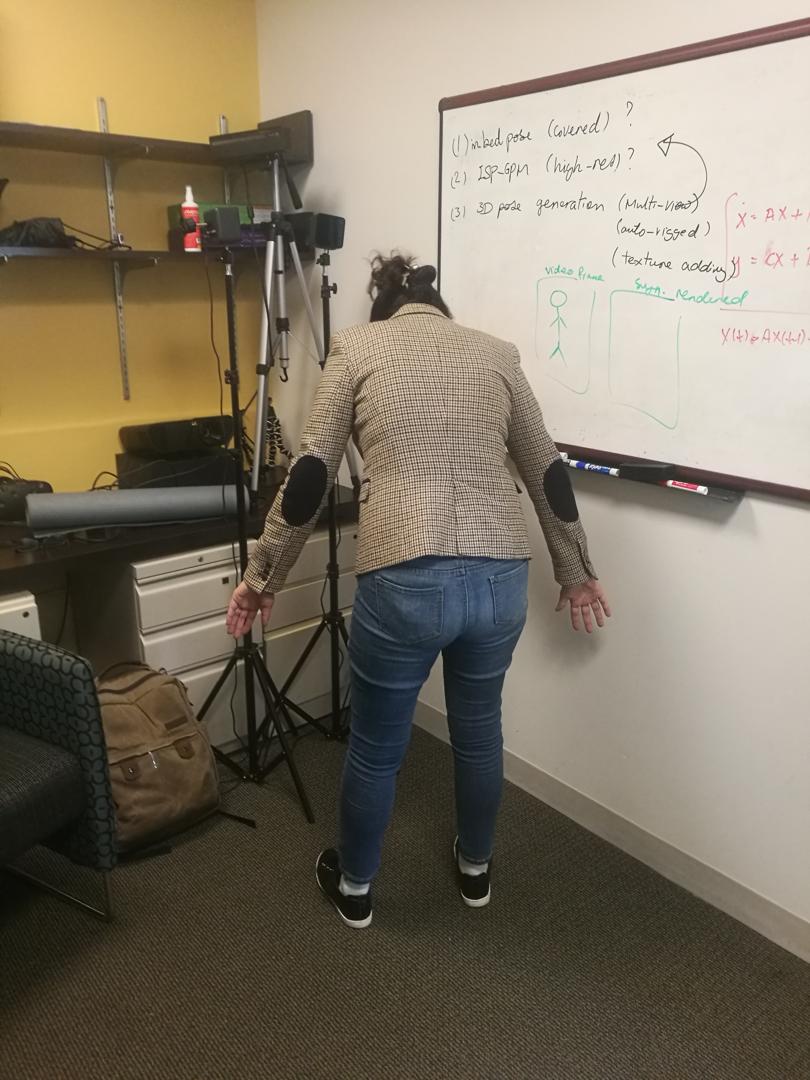 (1) in bed pose (covered) ?
(2) ISP-GPM (high-res) ?
(3) 3D pose generation (Multi-view)
(auto-rigged)
(texture adding)
video frame
Synth. rendered
ẋ = AX +
y = CX +
X(t) = AX(t-1)